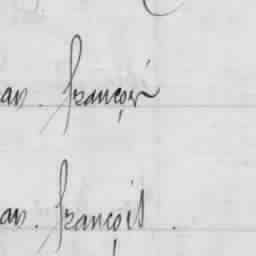 françois
françois.